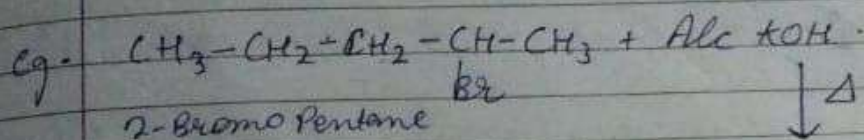 eg. CH₃-CH₂-CH₂-CH-CH₃ + Alc KOH.
Br
2-Bromo Pentane
Δ